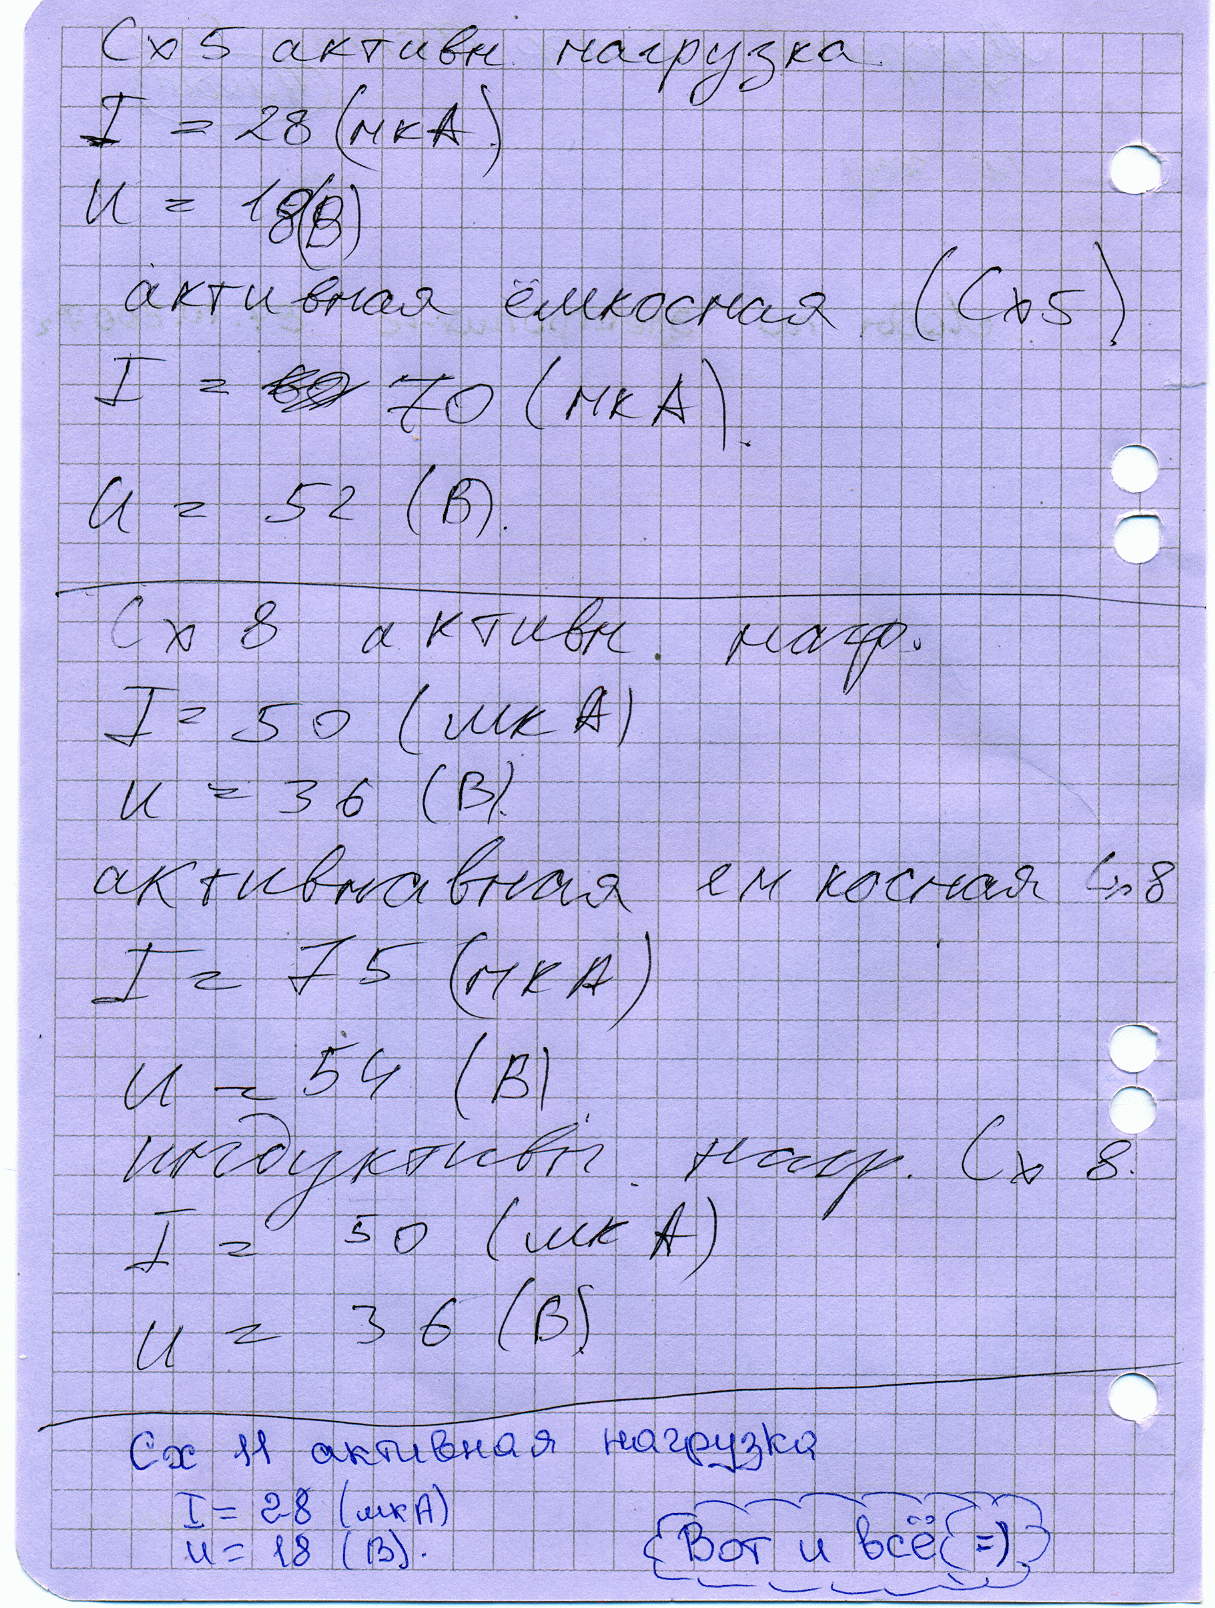 Сх 5 активн. нагрузка.
I = 28 (мкА).
U = 18 (В)
активная ёмкосная (Сх 5).
I = 70 (мкА).
U = 52 (В).
Сх 8 активн. нагр.
I = 50 (мкА)
U = 36 (В).
активнавная емкосная Сх 8
I = 75 (мкА)
U = 54 (В)
индуктивн. нагр. Сх 8.
I = 50 (мкА)
U = 36 (В).
Сх 11 активная нагрузка
I = 28 (мкА)
U = 18 (В).
Вот и всё =)